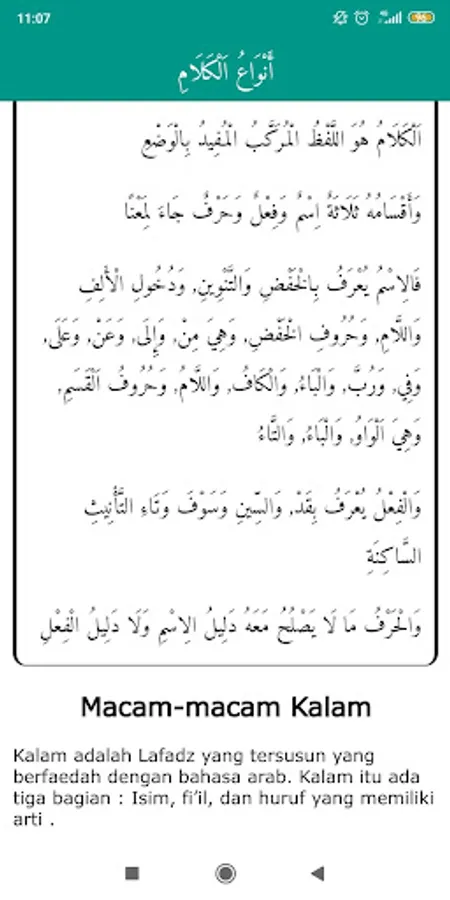 11:07
أَنْوَاعُ اَلْكَلَامِ
اَلْكَلَامُ هُوَ اللَّفْظُ الْمُرَكَّبُ الْمُفِيدُ بِالْوَضْعِ
وَأَقْسَامُهُ ثَلَاثَةٌ اِسْمٌ وَفِعْلٌ وَحَرْفٌ جَاءَ لِمَعْنًا
فَالِاسْمُ يُعْرَفُ بِالْخَفْضِ وَالتَّنْوِينِ, وَدُخُولِ الْأَلِفِ
وَاللَّامِ, وَحُرُوفِ الْخَفْضِ, وَهِيَ مِنْ, وَإِلَى, وَعَنْ, وَعَلَى,
وَفِي, وَرُبَّ, وَالْبَاءُ, وَالْكَافُ, وَاللَّامُ, وَحُرُوفُ الْقَسَمِ,
وَهِيَ الْوَاوُ, وَالْبَاءُ, وَالتَّاءُ
وَالْفِعْلُ يُعْرَفُ بِقَدْ, وَالسِّينِ وَسَوْفَ وَتَاءِ التَّأْنِيثِ
السَّاكِنَةِ
وَالْحَرْفُ مَا لَا يَصْلُحُ مَعَهُ دَلِيلُ الِاسْمِ وَلَا دَلِيلُ الْفِعْلِ
Macam-macam Kalam
Kalam adalah Lafadz yang tersusun yang
berfaedah dengan bahasa arab. Kalam itu ada
tiga bagian : Isim, fi’il, dan huruf yang memiliki
arti .